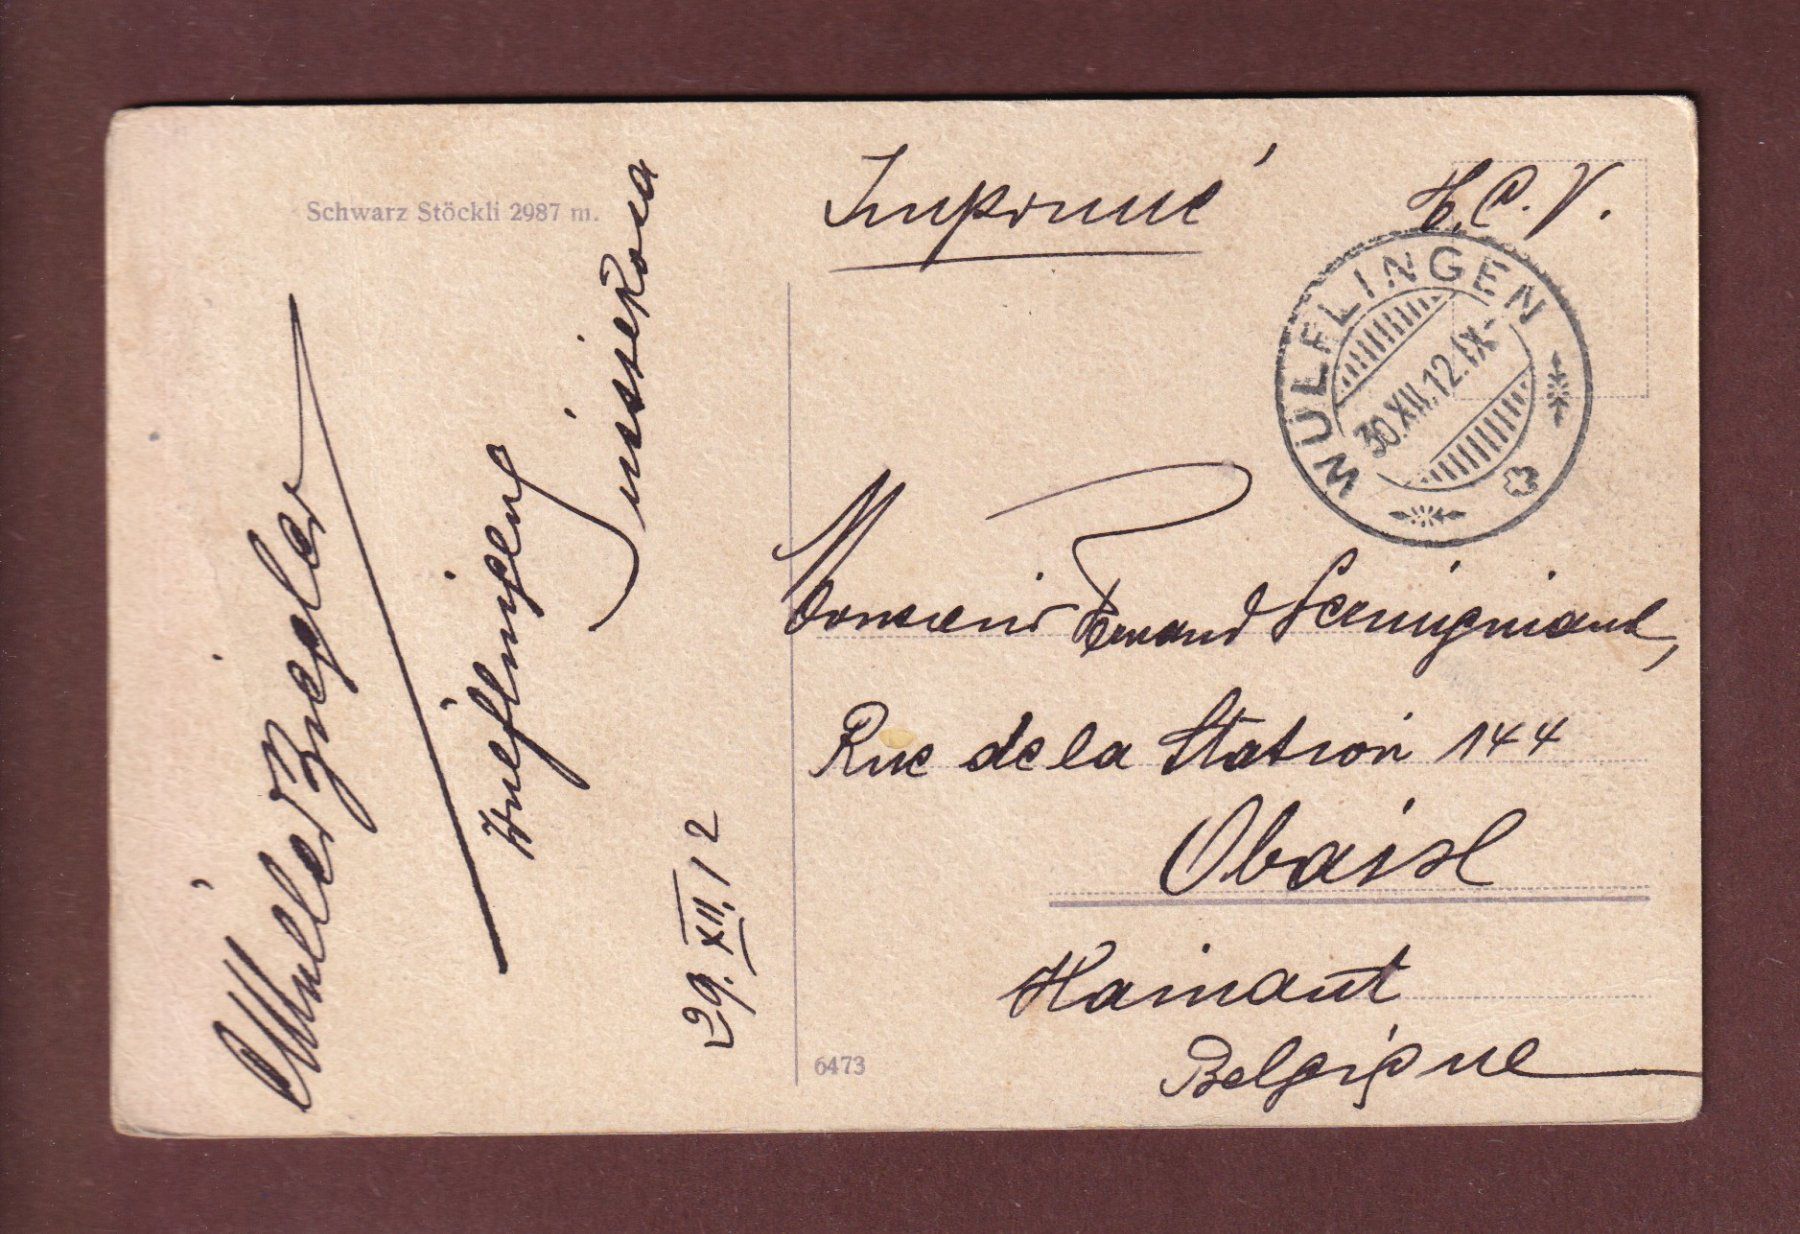 Schwarz Stöckli 2987 m.
Imprimé
T.C.V.
WÜLFLINGEN
30.XII.12.IX-
Müller Ziegler
Wülflingen
Suisse
29. XII. 12
Monsieur Fernand
Rue de la Station 144
Obaix
Hainaut
Belgique
6473